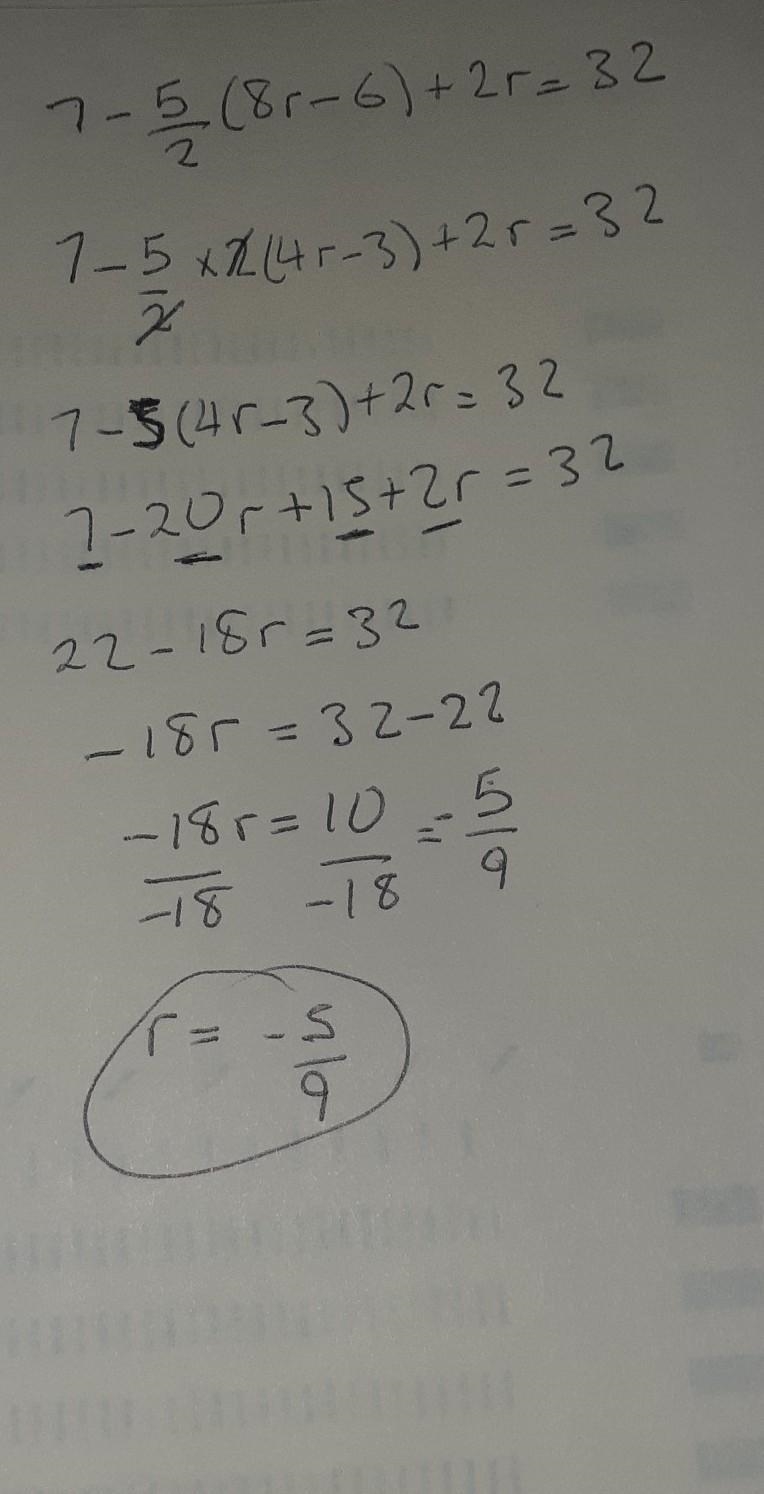 7 - 5/2 (8r - 6) + 2r = 32
7 - 5/2 × 2(4r - 3) + 2r = 32
7 - 5(4r - 3) + 2r = 32
7 - 20r + 15 + 2r = 32
22 - 18r = 32
-18r = 32 - 22
-18r/-18 = 10/-18 = -5/9
r = -5/9